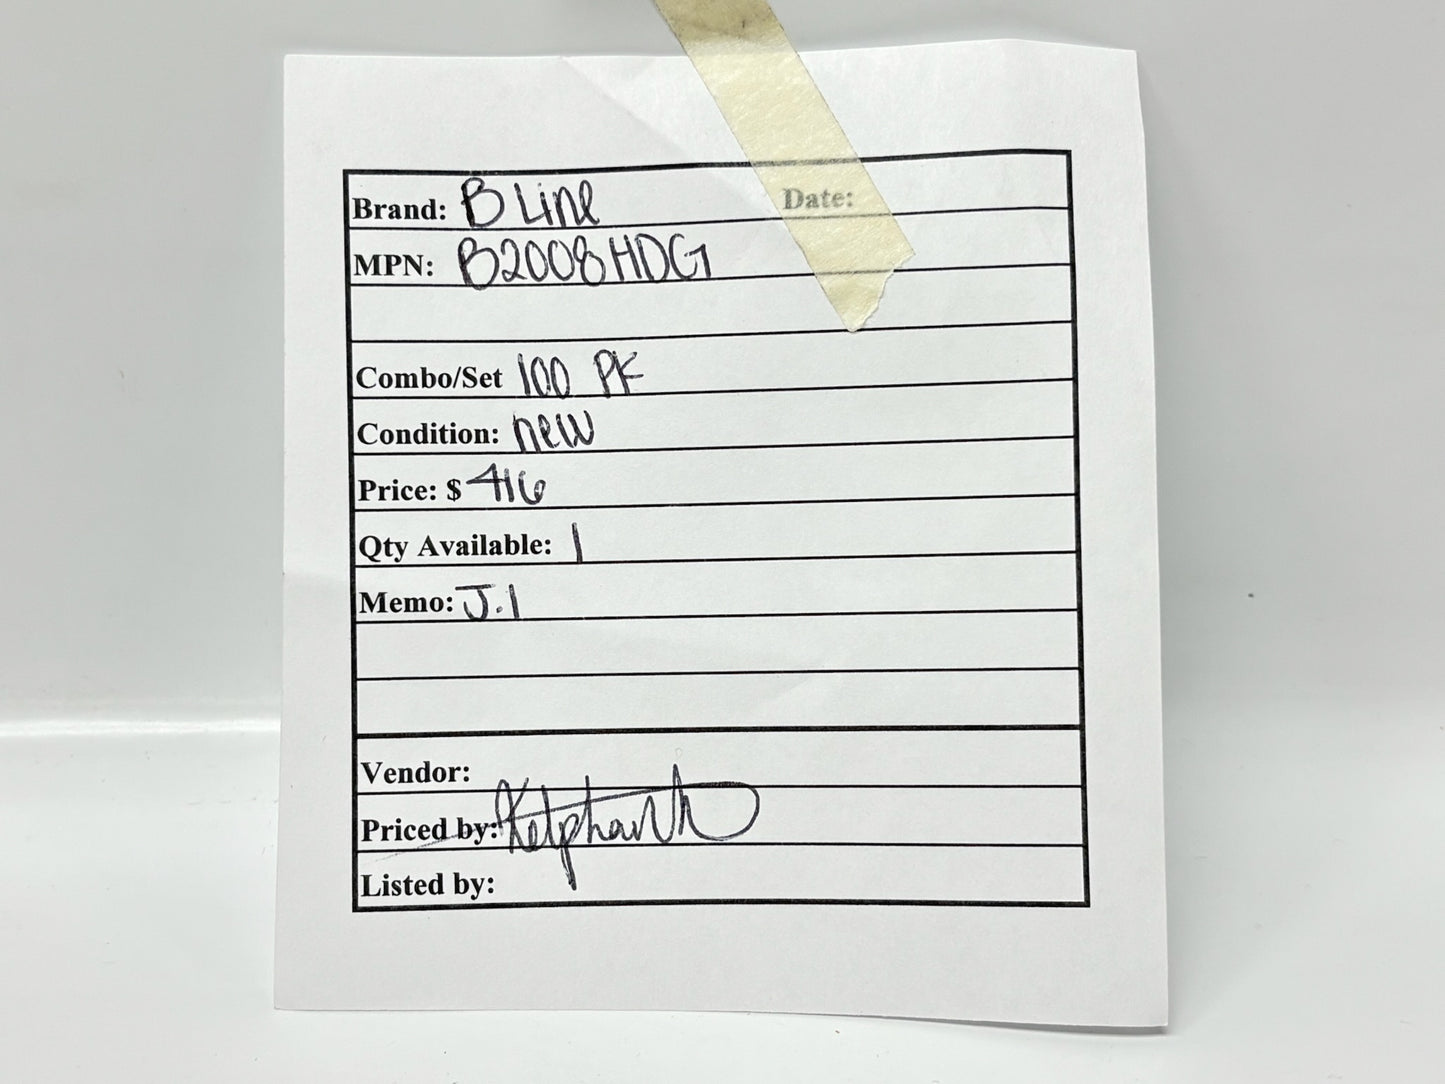 Brand: B Line Date:
MPN: B2008HDG
Combo/Set 100 PK
Condition: new
Price: $ 416
Qty Available: 1
Memo: J.1
Vendor:
Priced by:
Listed by: